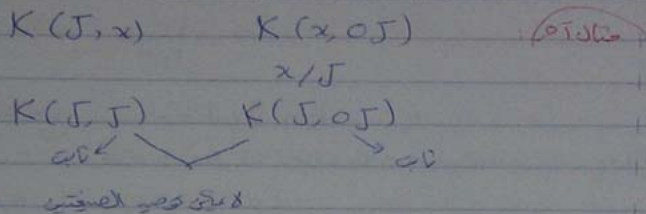 مثال آخر
K(J, x) K(x, OJ)
x/J
K(J, J) K(J, OJ)
ثابت ثابت
لا يمكن توحيد الصيغتين